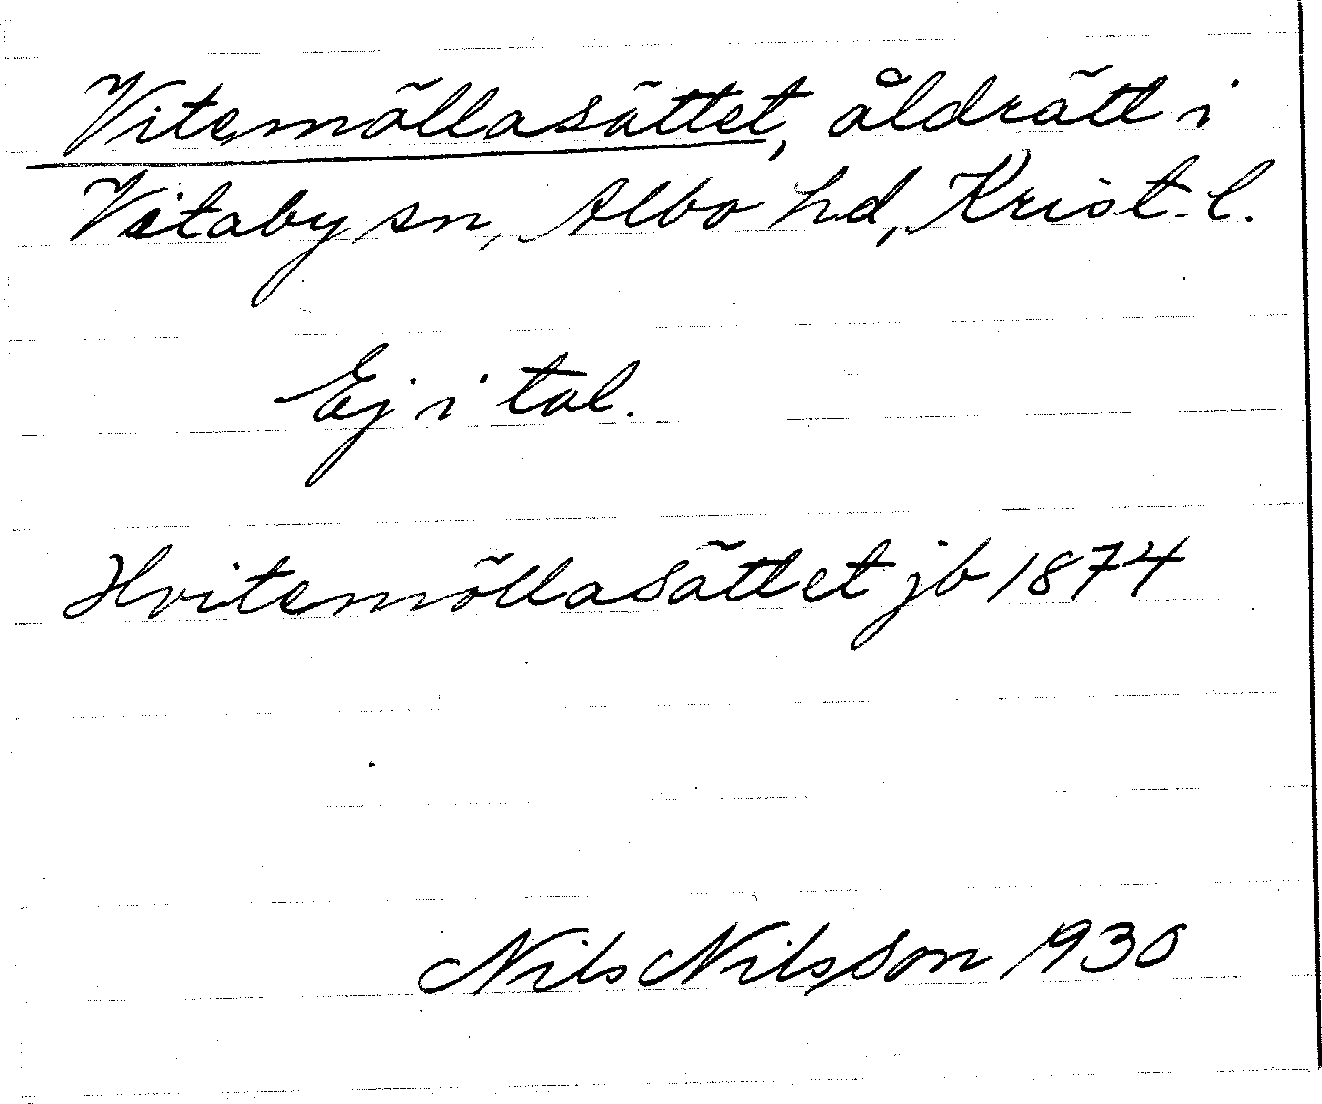 Vitemöllasättet, åldrätt i
Vitaby sn, Albo hd, Krist. l.
Ej i tal.
Hvitemöllasättet jb 1874
Nils Nilsson 1930